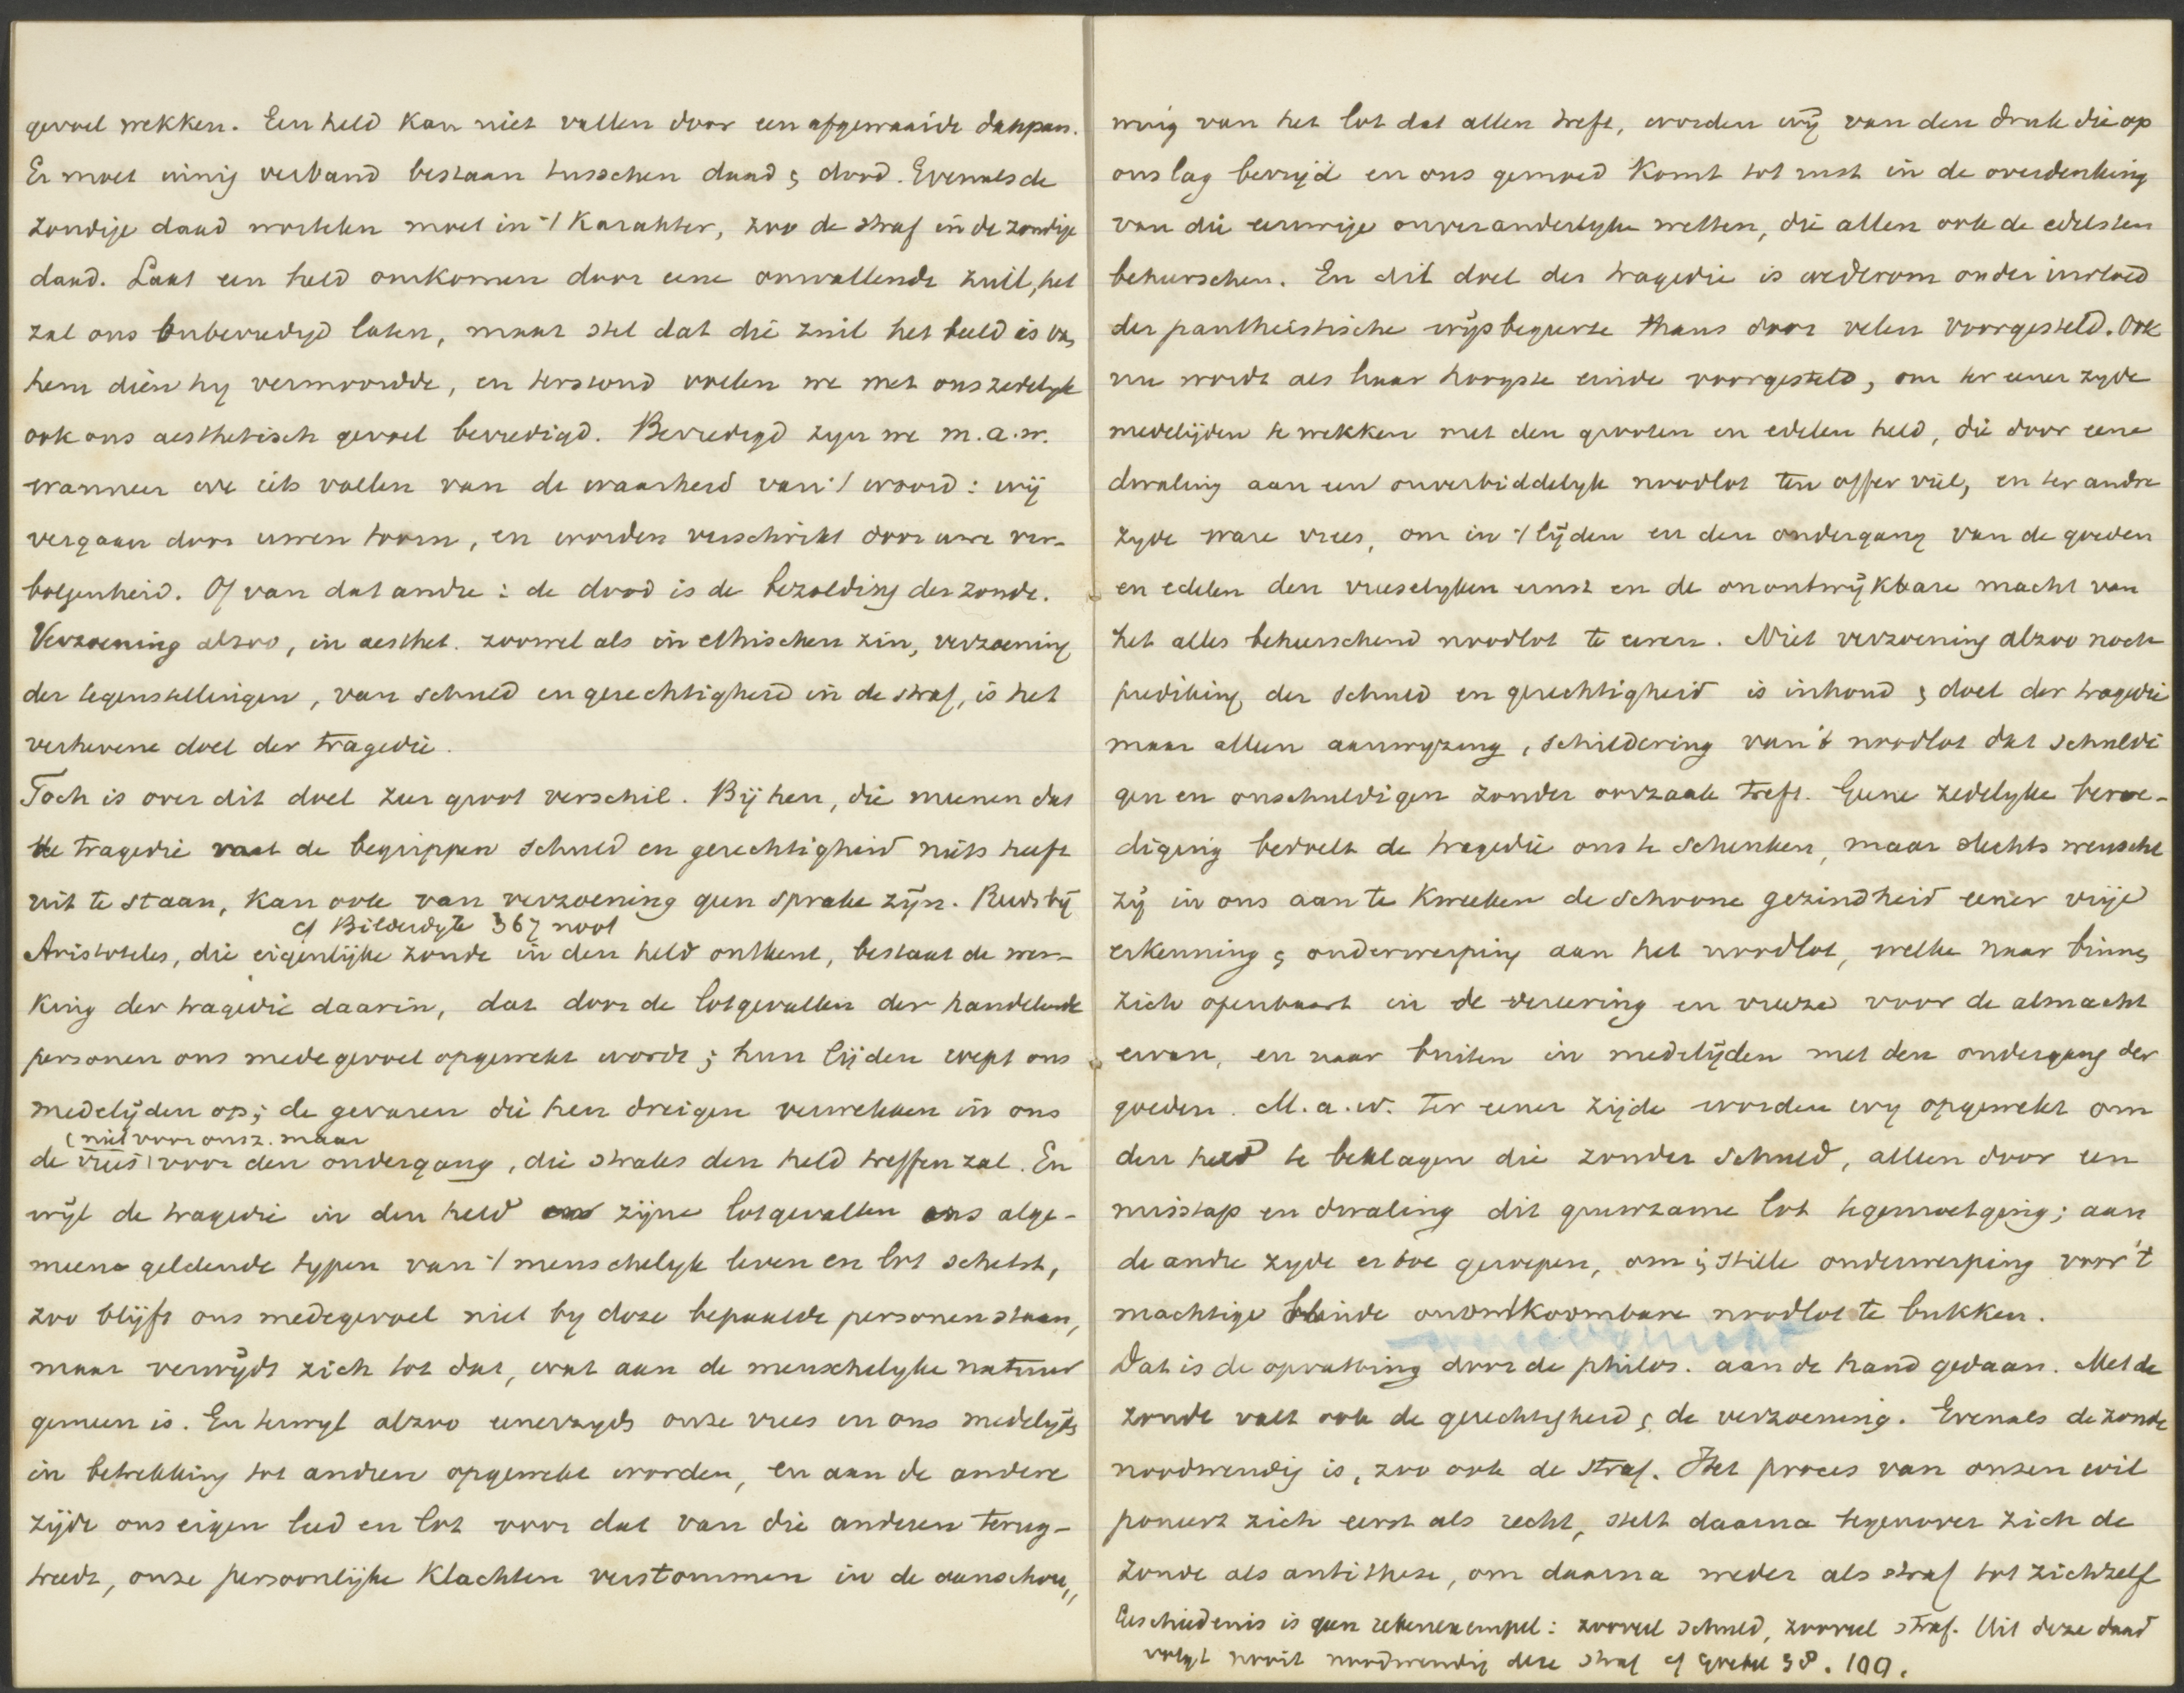 gevoel wekken. Een held kan niet vallen door een afgewaaide dakpan.
Er moet innig verband bestaan tusschen daad & dood. Evenals de
zondige daad wortelen moet in 't karakter, zoo de straf in de zondige
daad. Laat een held omkomen door eene omvallende zuil, het
zal ons onbevredigd laten, maar stel dat die zuil het beeld is van
hem dien hy vermoordde, en terstond voelen we met ons zedelyk
ook ons aesthetisch gevoel bevredigd. Bevredigd zyn we m.a.w.
wanneer we iets voelen van de waarheid van 't woord: wij
vergaan door uwen toorn, en worden verschrikt door uwe ver-
bolgenheid. Of van dat andre: de dood is de bezolding der zonde.
Verzoening alzoo, in aesthet. zoowel als in ethischen zin, verzoening
der tegenstellingen, van schuld en gerechtigheid in de straf, is het
verhevene doel der tragedie.
Toch is over dit doel zeer groot verschil. Bij hen, die meenen dat
de tragedie met de begrippen schuld en gerechtigheid niets heeft
uit te staan, kan ook van verzoening geen sprake zijn. Reeds bij
cf Bilderdyk 367 noot
Aristoteles, die eigenlijke zonde in den held ontkent, bestaat de wer-
king der tragedie daarin, dat door de lotgevallen der handelende
personen ons medegevoel opgewekt wordt; hun lijden wekt ons
medelijden op; de gevaren die hen dreigen verwekken in ons
(niet voor onsz. maar
de vrees voor den ondergang, die straks den held treffen zal. En
wijl de tragedie in den held en zijne lotgevallen ons alge-
meene geldende typen van 't menschelyk leven en lot schetst,
zoo blijft ons medegevoel niet by deze bepaalde personen staan,
maar verwijdt zich tot dat, wat aan de menschelyke natuur
gemeen is. En terwyl alzoo eenerzyds onze vrees en ons medelijden
in betrekking tot andren opgewekt worden, en aan de andere
zijde ons eigen leed en lot voor dat van die anderen terug-
treedt, onze persoonlijke klachten verstommen in de aanschou„
wing van het lot dat allen treft, worden wij van den druk die op
ons lag bevrijd en ons gemoed komt tot rust in de overdenking
van die eeuwige onveranderlyke wetten, die allen ook de edelsten
beheerschen. En dit doel der tragedie is wederom onder invloed
der pantheistische wijsbegeerte thans door velen voorgesteld. Ook
nu wordt als haar hoogste einde voorgesteld, om ter eener zyde
medelijden te wekken met den grooten en edelen held, die door eene
dwaling aan een onverbiddelyk noodlot ten offer viel, en ter andre
zyde ware vrees, om in 't lijden en den ondergang van de goeden
en edelen den vreeselyken ernst en de onontwijkbare macht van
het alles beheerschend noodlot te eeren. Niet verzoening alzoo noch
prediking der schuld en gerechtigheid is inhoud & doel der tragedie
maar alleen aanwyzing, schildering van 't noodlot dat schuldi
gen en onschuldigen zonder oorzaak treft. Geene zedelyke bevre-
diging bedoelt de tragedie ons te schenken, maar slechts wenscht
zij in ons aan te kweeken de schoone gezindheid eener vrije
erkenning & onderwerping aan het noodlot, welke naar binnen
zich openbaart in de vereering en vreeze voor de almacht
ervan, en naar buiten in medelijden met den ondergang der
goeden. M.a.w. Ter eener zijde worden wy opgewekt om
den held te beklagen die zonder schuld, alleen door een
misstap en dwaling dit gruwzame lot tegemoetging; aan
de andre zyde er toe geroepen, om in stille onderwerping voor 't
machtige blinde onontkoombare noodlot te bukken.
Dat is de opvatting door de philos. aan de hand gedaan. Met de
zonde valt ook de gerechtigheid & de verzoening. Evenals de zonde
noodwendig is, zoo ook de straf. Het proces van onzen wil
poneert zich eerst als recht, stelt daarna tegenover zich de
zonde als antithese, om daarna weder als straf tot zichzelf
Geschiedenis is geen rekenexempel: zooveel schuld, zooveel straf. Uit deze daad
volgt nooit noodwendig deze straf cf 98. 100.